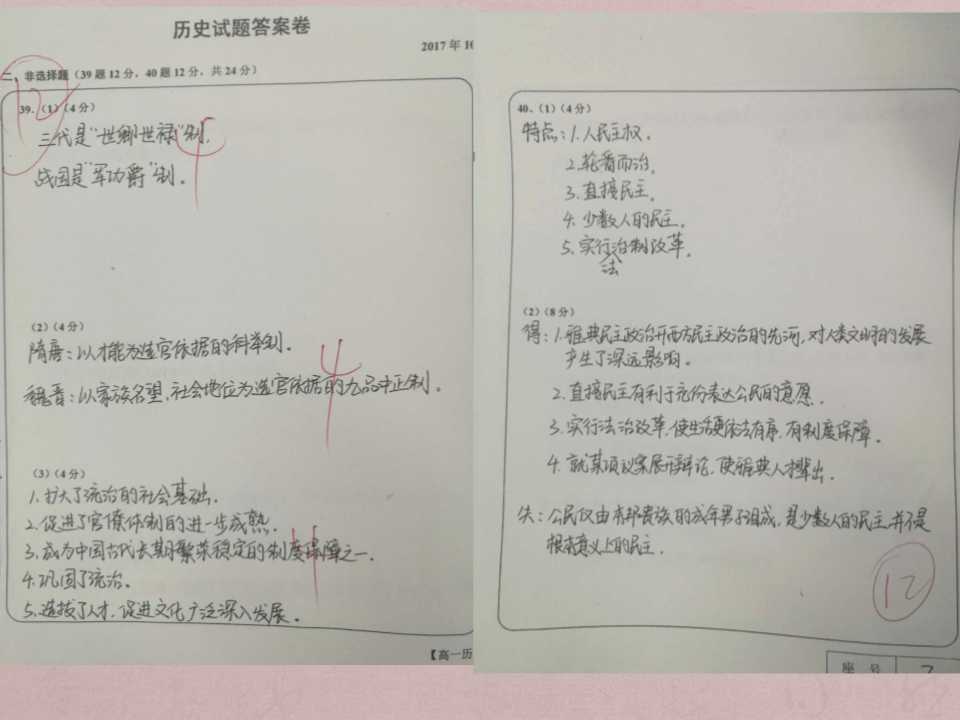 历史试题答案卷
2017年10
二、非选择题(39题12分,40题12分,共24分)
12
39.(1)(4分)
三代是"世卿世禄"制.
4
战国是"军功爵"制。
(2)(4分)
隋唐:以才能为选官依据的科举制.
4
魏晋:以家族名望、社会地位为选官依据的九品中正制.
(3)(4分)
1.扩大了统治的社会基础.
2.促进了官僚体制的进一步成熟.
3.成为中国古代长期繁荣稳定的制度保障之一.
4
4.巩固了统治。
5.选拔了人才,促进文化广泛深入发展。
【高一历
40.(1)(4分)
特点:1.人民主权.
2.轮番而治.
3.直接民主.
4.少数人的民主.
5.实行法制改革.
(2)(8分)
得:1.雅典民主政治开西方民主政治的先河,对人类文明的发展
产生了深远影响.
2.直接民主有利于充份表达公民的意愿.
3.实行法治改革,使生活更依法有序,有制度保障.
4.就某项议案展开辩论,使雅典人才辈出.
失:公民仅由本邦贵族的成年男子组成,是少数人的民主,并不是
根本意义上的民主.
12
座 号
7